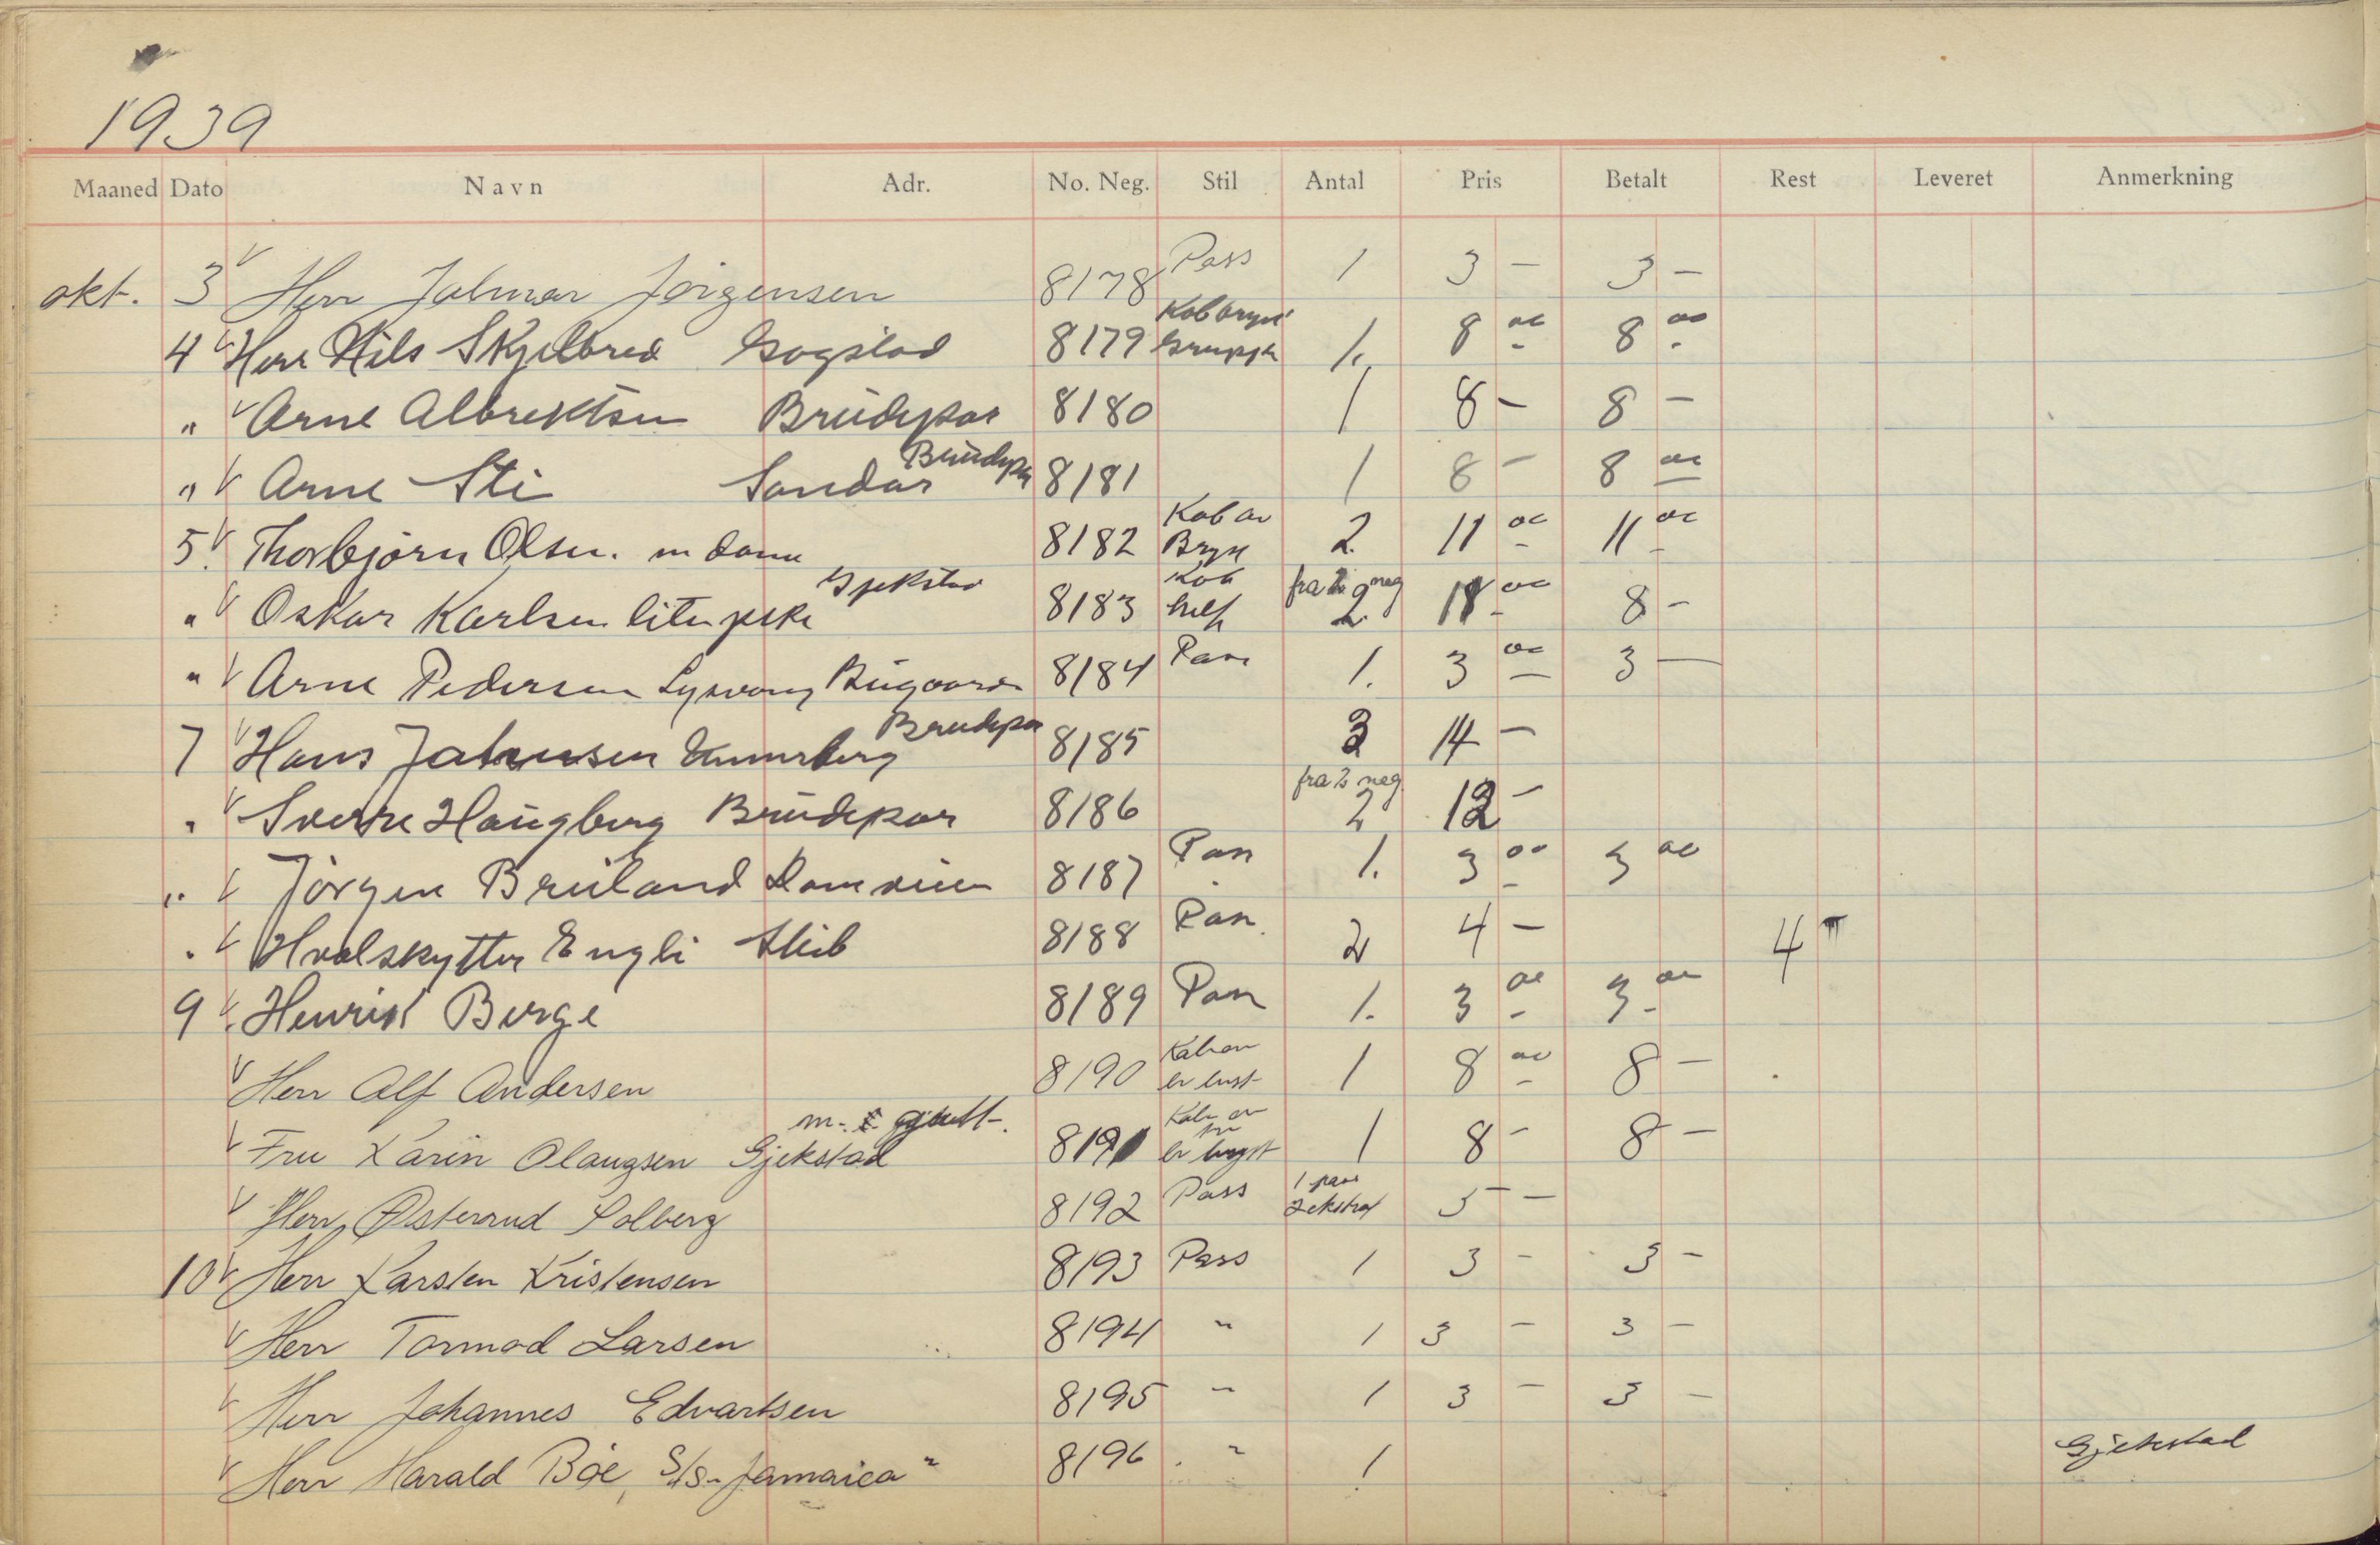 1939
Maaned Dato Navn Adr. No. Neg. Stil Antal Pris Betalt Rest Leveret Anmerkning
okt. 3 Herr Jalmar Jörgensen 8178 Pass 1 3 - 3 -
4 Herr Nils Skjelbred Gogstad 8179 Kab bryst Gruppe 1. 8 oo 8 oo
" Arne Albrektsen Brudepar 8180 1 8 - 8 -
" Arne Sti Sandar Brudepar 8181 1 8 - 8 oo
5. Thorbjörn Olsen. m dame 8182 Kab av Bryst 2. 11 oo 11 oo
" Oskar Karlsen liten pike Gjekstad 8183 Kab hel fra 2 neg 2. 18 oo 8 -
" Arne Pedersen Bugaarden 8184 Pass 1. 3 oo 3 -
7 Hans Jahnsen Unneberg Brudepar 8185 3 14 -
" Sverre Haugberg Brudepar 8186 fra 2 neg. 2 12 -
" Jörgen Bruland 8187 Pass 1. 3 oo 3 oo
" Hvalskytter Engli Stub 8188 Pass. 2 4 - 4
9 Henrik Berge 8189 Pass 1. 3 oo 3 oo
Herr Alf Andersen 8190 Kab av br bust 1 8 oo 8 -
Fru Karin Olaugsen Gjekstad m. gutt. 8191 Kab av br bryst 1 8 - 8 -
Herr Østerrud Solberg 8192 Pass 1 pass 2 ekstra 5 -
10 Herr Karsten Kristensen 8193 Pass 1 3 - 3 -
Herr Tormod Larsen 8194 " 1 3 - 3 -
Herr Johannes Edvartsen 8195 " 1 3 - 3 -
Herr Harald Böe, S/s "Jamaica" 8196 " 1 Gjekstad